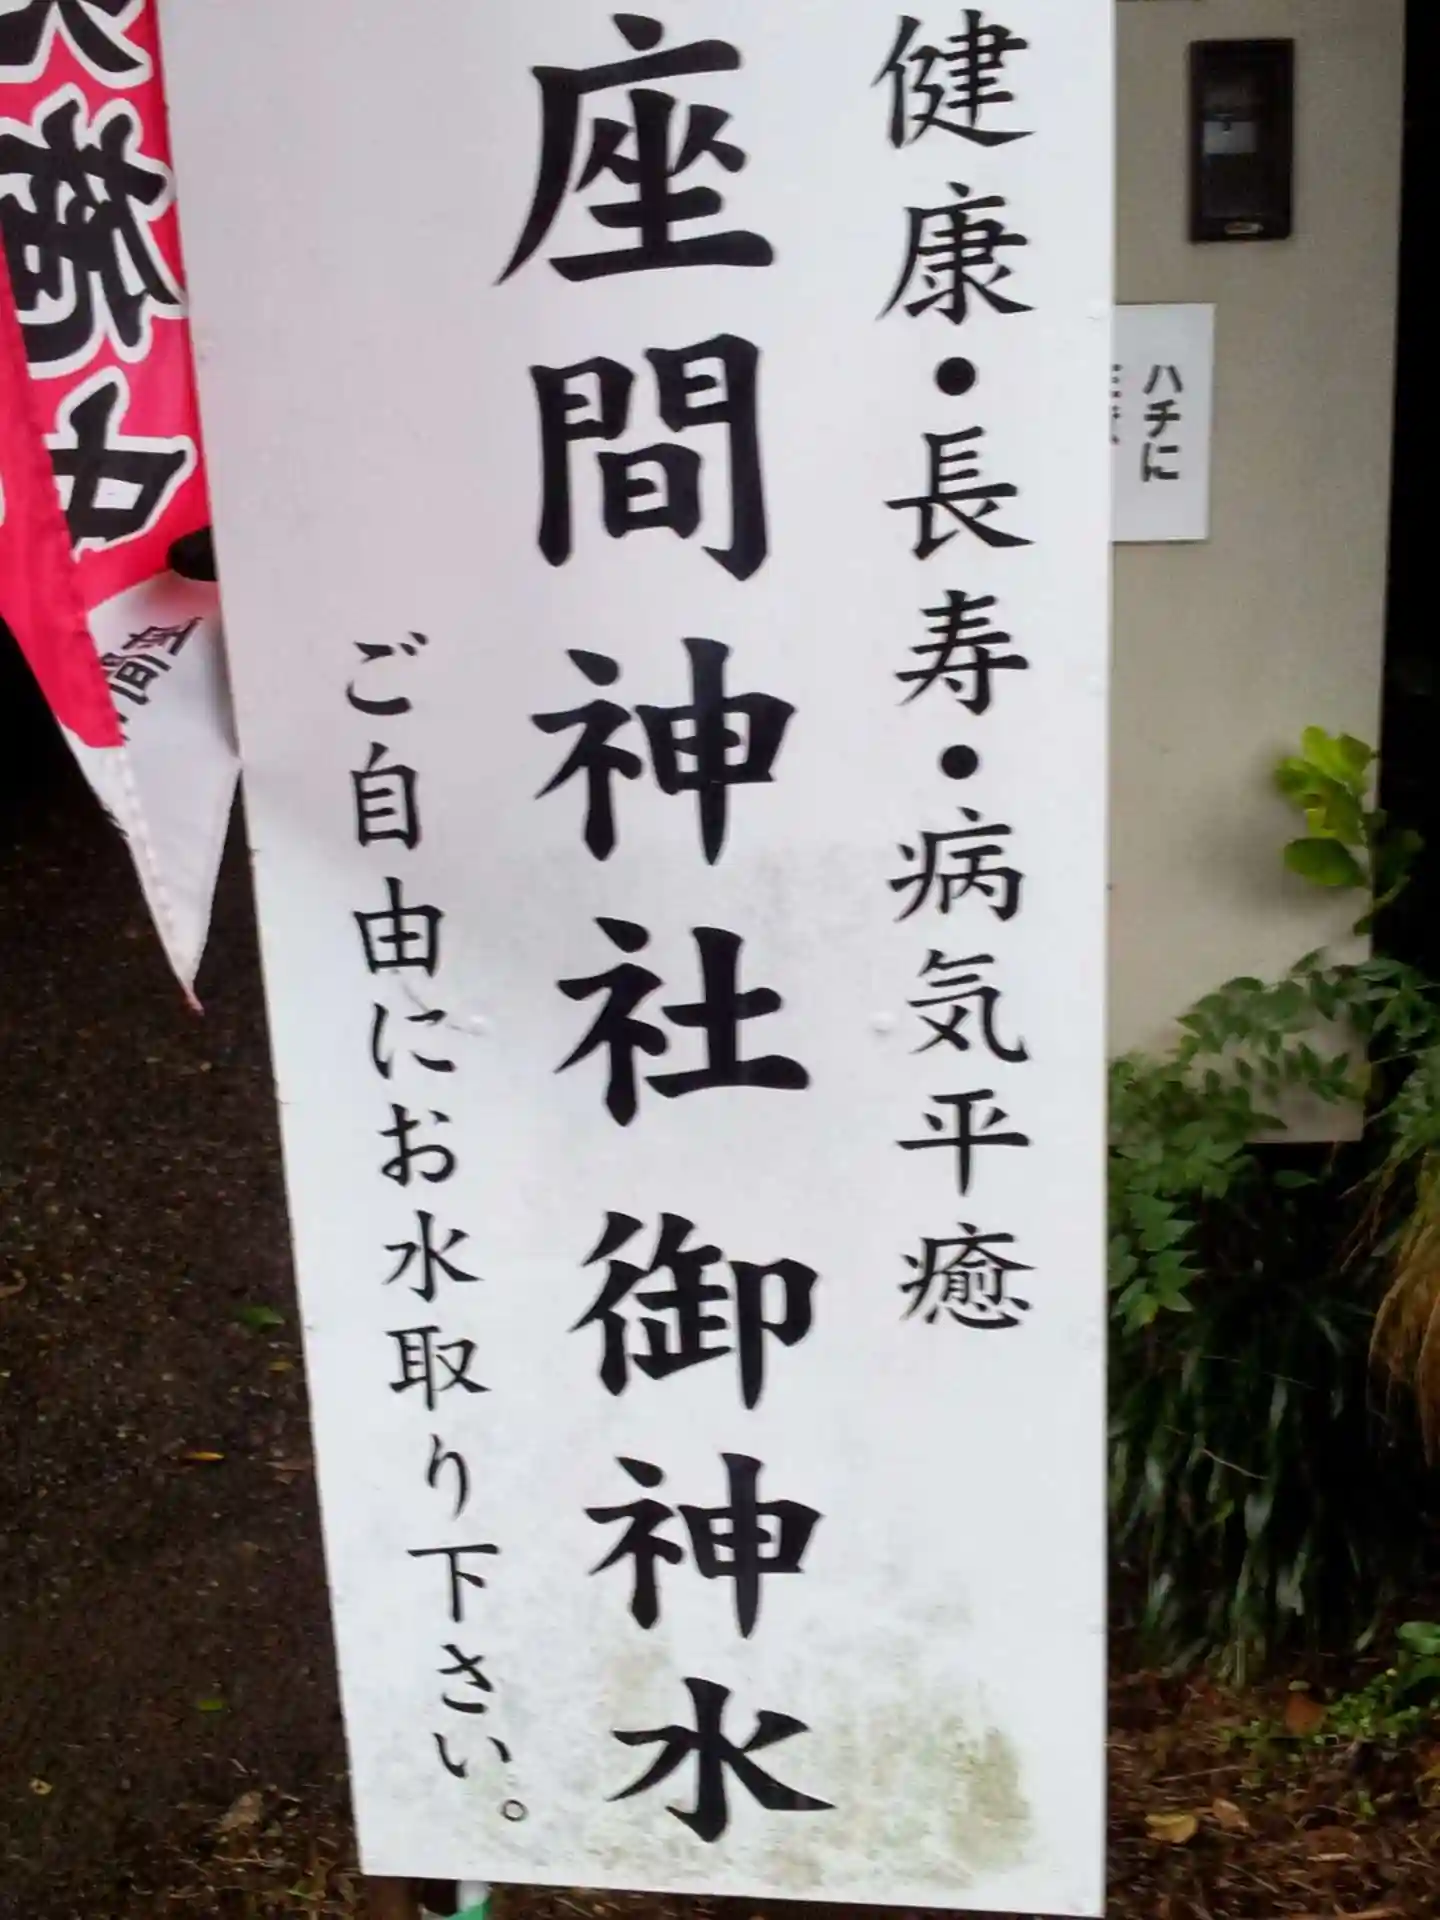 健康・長寿・病気平癒
座間神社御神水
ご自由にお水取り下さい。
ハチに
座間
中